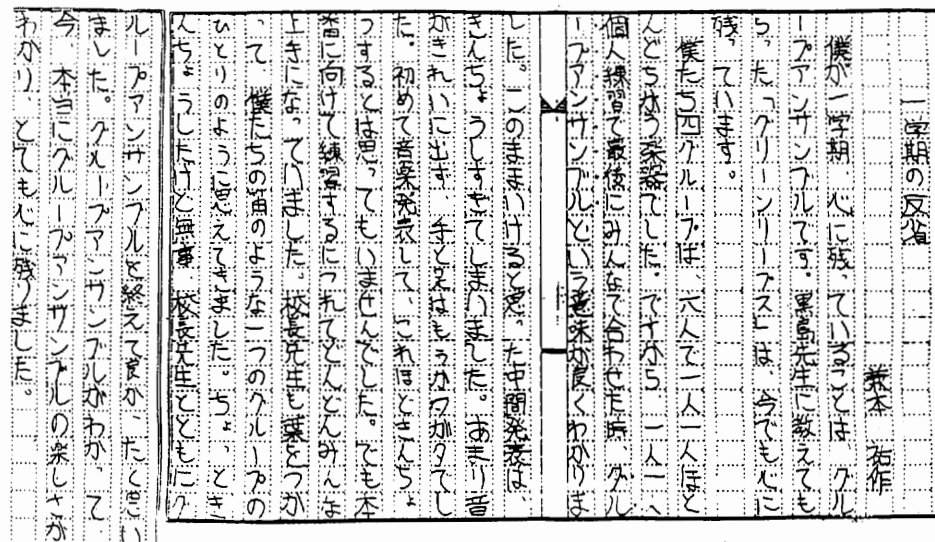 一学期の反省
兼本 祐作
僕が一学期、心に残っていることは、グル
ープアンサンブルです。黒島先生に教えても
らった「グリーンスリーブス」は、今でも心に
残っています。
僕たち四グループは、六人で一人一人ほと
んどちがう楽器でした。ですから、一人一人
個人練習で最後にみんなで合わせた時、グル
ープアンサンブルという意味が良くわかりま
した。このままいけると思った中間発表は、
きんちょうしすぎてしまいました。あまり音
がきれいに出ず、手と足はもうガタガタでし
た。初めて音楽発表して、これほどきんちょ
うするとは思ってもいませんでした。でも本
番に向けて練習するにつれてどんどんみんな
上手になっていました。校長先生も葉をつか
って、僕たちの笛のような一つのグループの
ひとりのように思えてきました。ちょっとき
んちょうしたけど無事、校長先生とともにグ
ループアンサンブルを終えて良かったと思い
ました。グループアンサンブルがわかって
今、本当にグループアンサンブルの楽しさが
わかり、とても心に残りました。